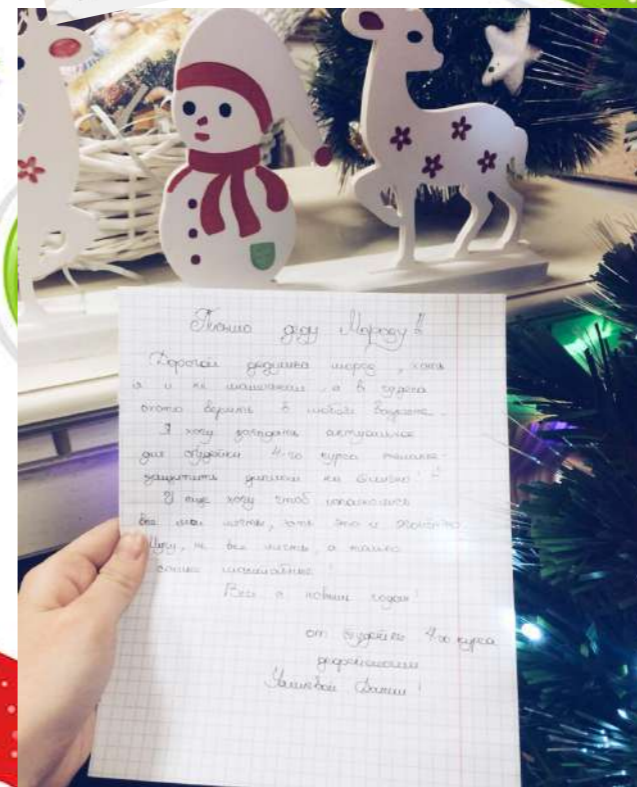 Письмо деду Морозу!
Дорогой дедушка мороз, хоть
я и не маленькая, а в чудеса
охота верить в любом возрасте.
Я хочу загадать актуальное
для студентки 4-го курса желание:
защитить диплом на отлично!
И еще хочу чтоб исполнились
все мои мечты, хоть это и
Ну, не все мечты, а только
самые масштабные!
Всех с новым годом!
от студентки 4-го курса